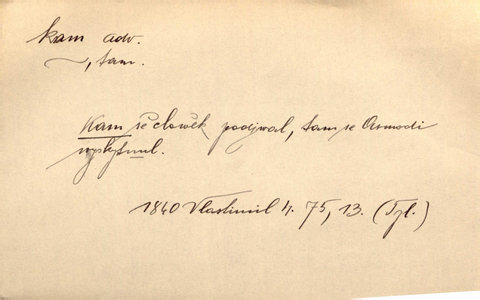 kam adv.
~, tam.
Kam se člowěk podjwal, tam se Asmodi
wyskytnul.
1840 Vlastimil 4. 75, 13. (Tyl.)